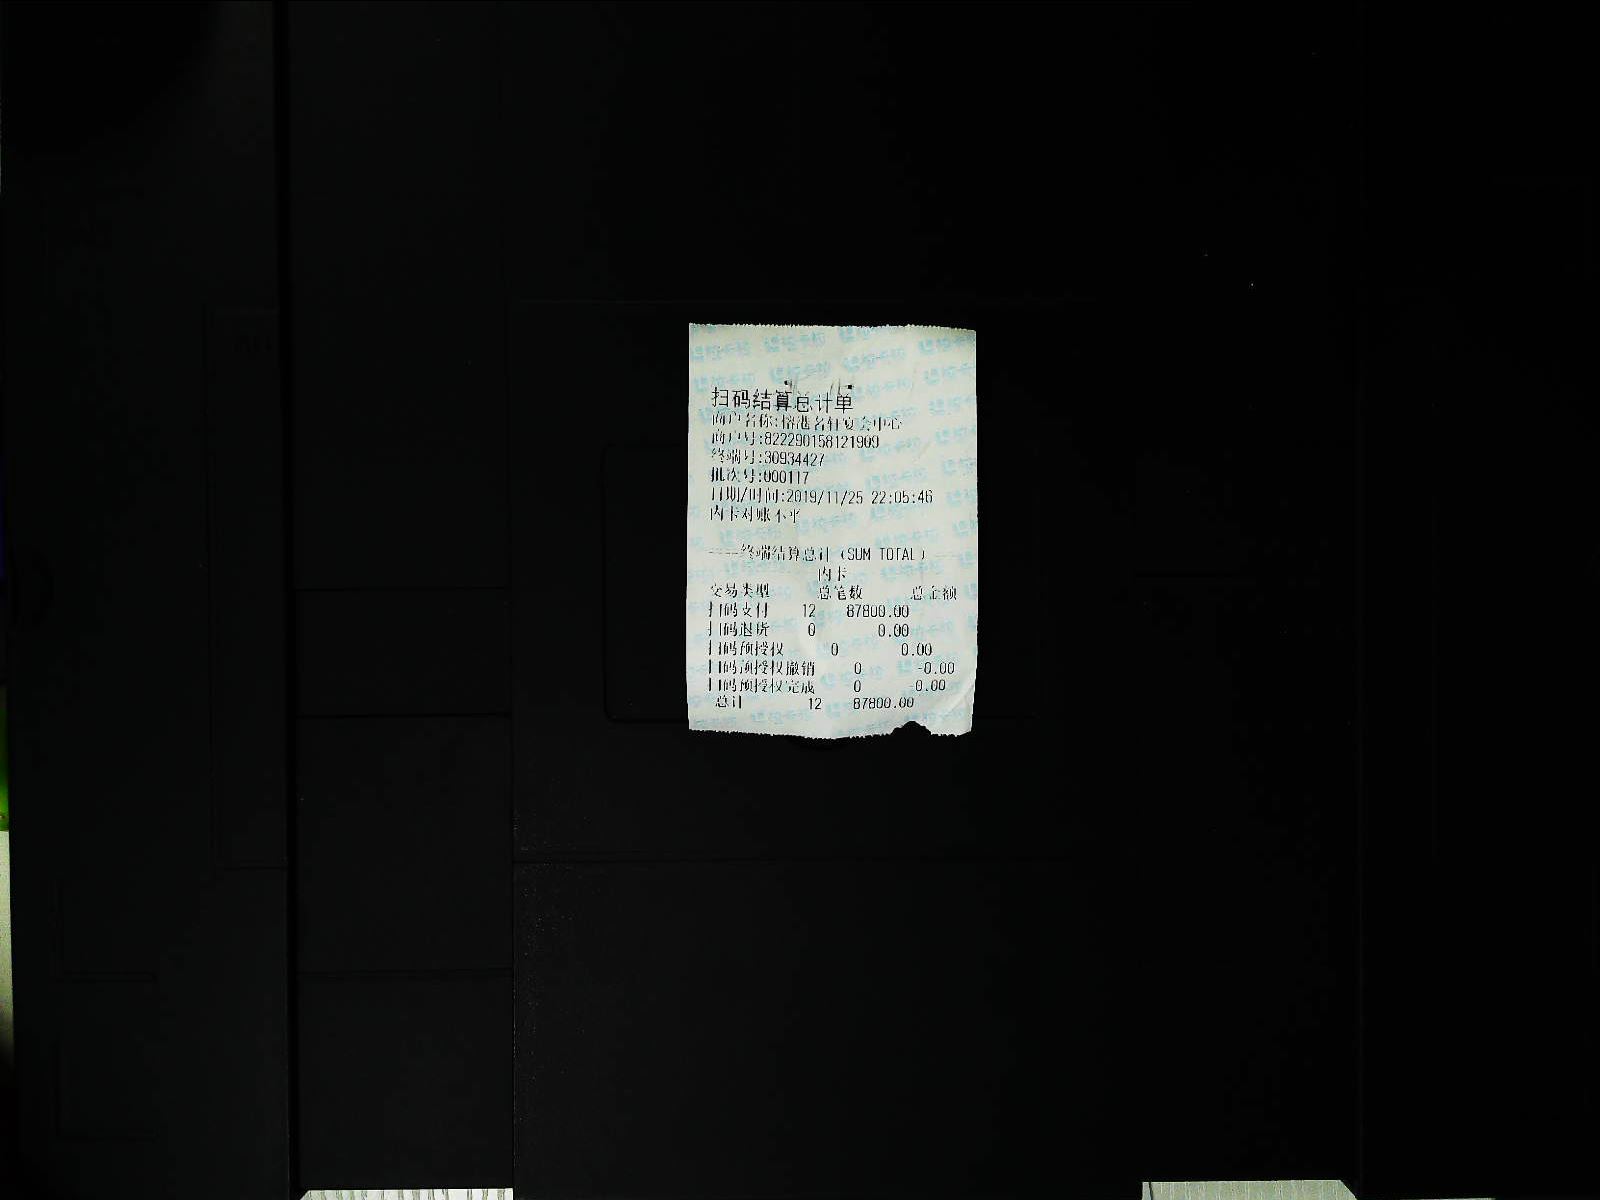 扫码结算总计单
商户名称:榕港名轩宴会中心
商户号:822290158121909
终端号:30934427
批次号:000117
日期/时间:2019/11/25 22:05:46
内卡对账不平
----终端结算总计（SUM TOTAL）----
内卡
交易类型 总笔数 总金额
扫码支付 12 87800.00
扫码退货 0 0.00
扫码预授权 0 0.00
扫码预授权撤销 0 -0.00
扫码预授权完成 0 -0.00
总计 12 87800.00